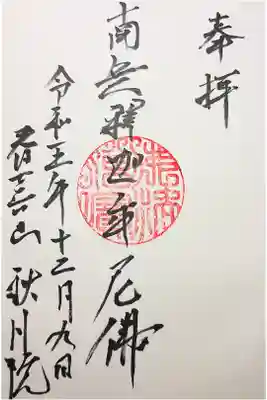 奉拝
南無釋迦牟尼佛
令和五年十二月九日
山 秋月院